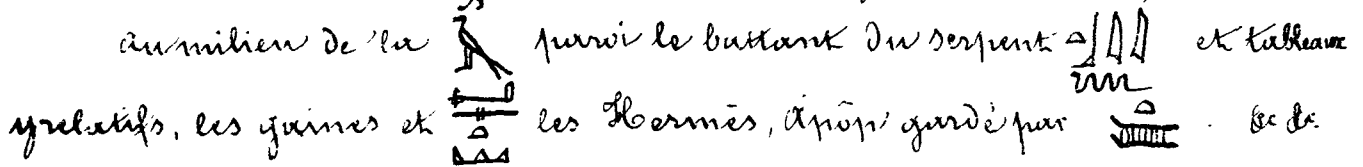 au milieu de la paroi le battant du serpent et tableaux
y relatifs, les gaines et les Hermès, Apôp gardé par . &c &c.